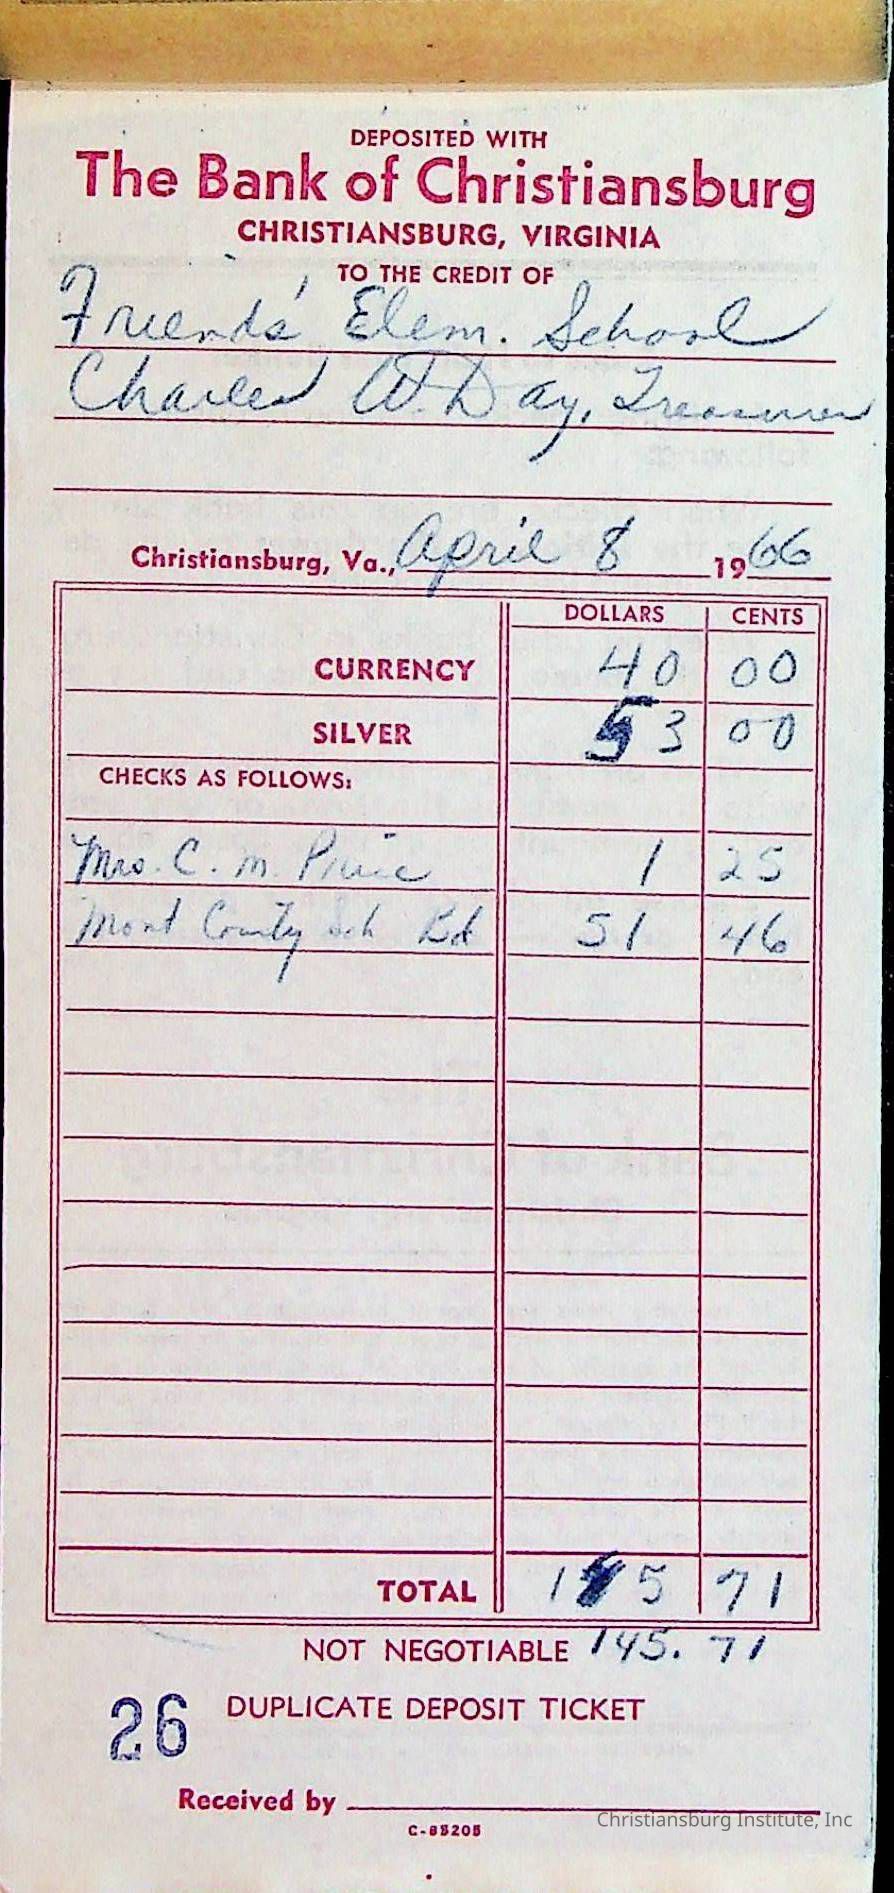 DEPOSITED WITH
The Bank of Christiansburg
CHRISTIANSBURG, VIRGINIA
TO THE CREDIT OF
Friends' Elem. School
Charles W. Day, Treasurer
Christiansburg, Va., April 8 1966
DOLLARS CENTS
CURRENCY 40 00
SILVER 53 00
CHECKS AS FOLLOWS:
Mrs. C. M. 1 25
Mont County Sch Bd 51 46
TOTAL 145 71
NOT NEGOTIABLE 145.71
DUPLICATE DEPOSIT TICKET
26
Received by
Christiansburg Institute, Inc
C-85205